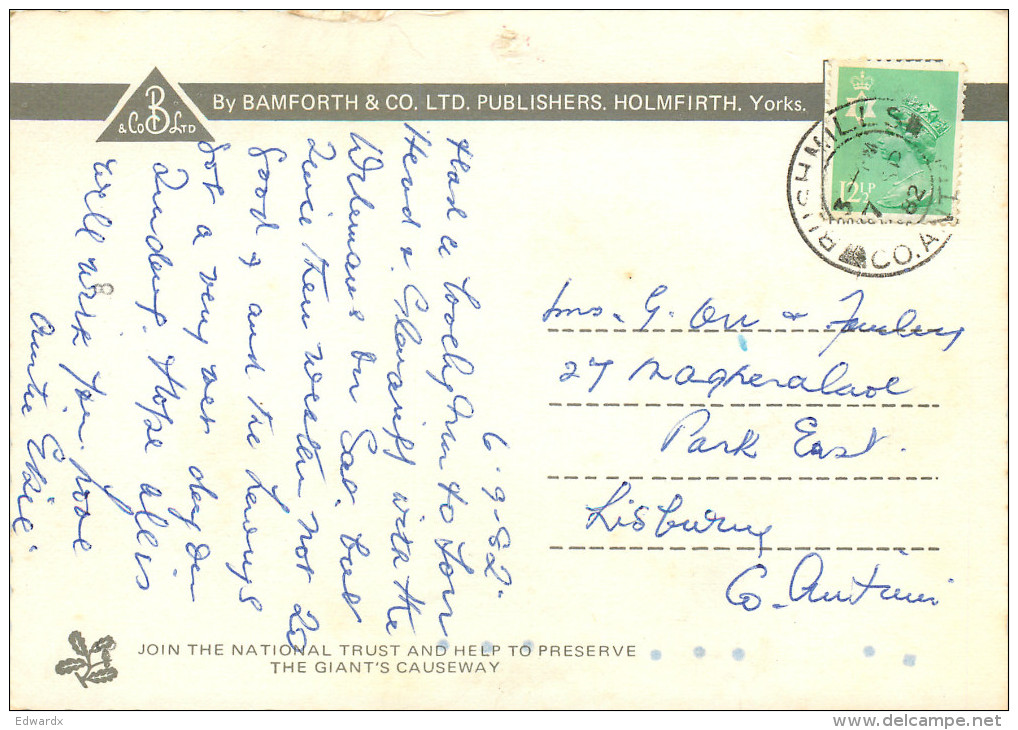 By BAMFORTH & CO. LTD. PUBLISHERS. HOLMFIRTH. Yorks.
B
& Co LTD
12½P
RUSHMILLS
CO. ANTRIM
7
82
6.9.82.
Had a lovely run to Torr
Head & Glenariff with the
on Sat. but
Twice then weather not so
good & and the
Got a very wet day in
Hope all is
well with you
Auntie Elsie.
Mrs. G. Orr & Family
27 Magheralave
Park East.
Lisburn
Co. Antrim
8
JOIN THE NATIONAL TRUST AND HELP TO PRESERVE
THE GIANT'S CAUSEWAY
Edwardx
delcampe.net